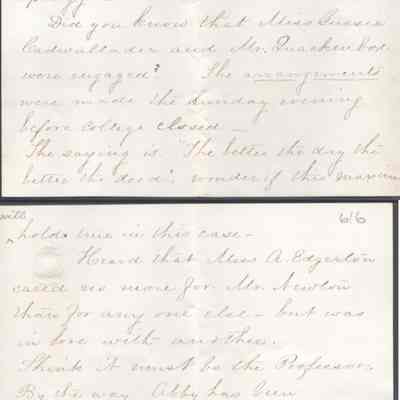 Did you know that Miss Sussie
Cadwallader and Mr. Quackenbos
were engaged? The arrangements
were made the Sunday evening
before College closed —
The saying is "The better the day the
better the deed", wonder if this maxim
will
holds true in this case —
616
Heard that Miss A. Edgerton
cared no more for Mr. Newton
than for any one else — but was
in love with another.
Think it must be the Professor.
By the way Abby has been